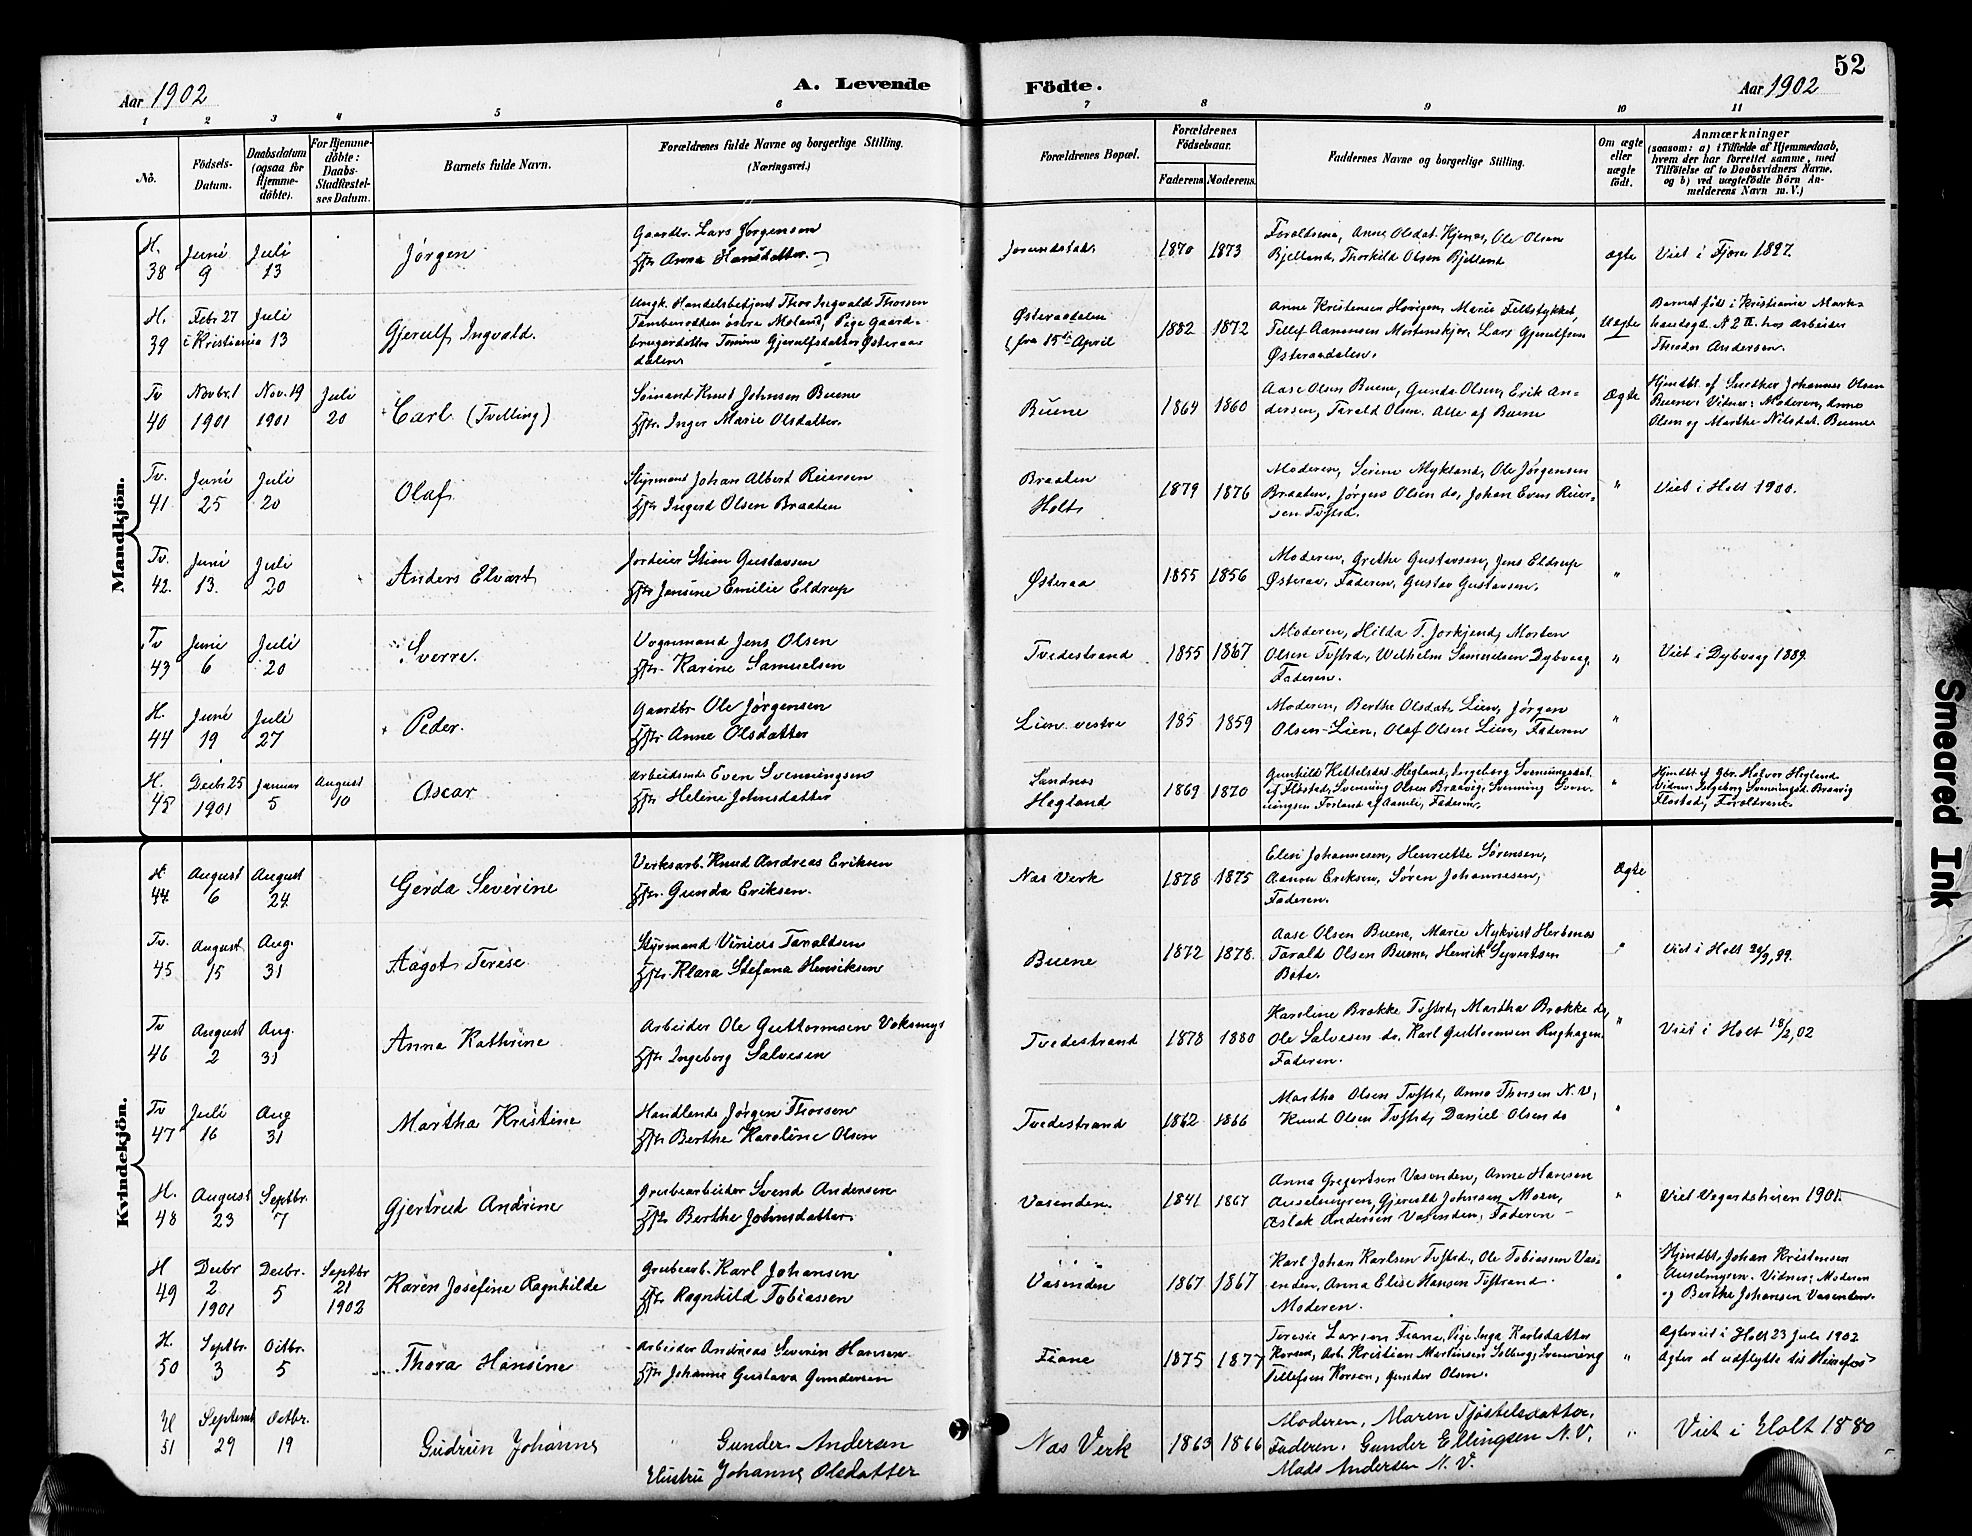 52
Aar 1902
A. Levende Födte.
Aar 1902
1 2 3 4 5 6 7 8 9 10 11
Nö.
Födsels-Datum.
Daabsdatum (ogsaa for Hjemme-döbte).
For Hjemme-döbte: Daabs-Stadfæstel-ses Datum.
Barnets fulde Navn.
Forældrenes fulde Navne og borgerlige Stilling. (Næringsvei.)
Forældrenes Bopæl.
Forældrenes Födselsaar.
Faderens. Moderens.
Faddernes Navne og borgerlige Stilling.
Om ægte eller uægte födt.
Anmærkninger
(saasom: a) i Tilfælde af Hjemmedaab,
hvem der har forrettet samme, med
Tilföielse af to Daabsvidners Navne.
og b) ved uægtefödte Börn An-
melderens Navn m. V.)
Mandkjön.
H. 38 Juni 9 Juli 13 Jørgen
Gaardbr. Lars Jørgensen
Hstr. Anna Hansdatter.
1870 1873
Forældrene, Anne Olsdat. Hjenes, Ole Olsen
Bjelland, Thorkild Olsen Bjelland
ægte
Viet i Fjære 1897.
H. 39 Febr 27 i Kristiania Juli 13 Gjerulf Ingvald.
Ungk. Handelsbetjent Thor Ingvald Thorsen
østre Moland, Pige Gaard-
brugerdatter Tomine Gjerulfsdatter Østeraa-
dalen
Østeraadalen
fra 15de April
1882 1872
Anne Kristensen Marie Feltstykket,
Tellef Aanonsen Lars Gjerulfsen
Østeraadalen.
Uægte
Barnet født i Kristiania Mark-
N 2 II. hos Arbeider
Theodor Andersen.
Tv 40 Novbr. 1 1901 Nov. 19 1901 Juli 20 Carl. (Tvilling)
Sømand Knut Johnsen Buene
Hstr. Inger Marie Olsdatter.
Buene
1864 1860
Aase Olsen Buene, Gunda Olsen, Erik An-
dersen, Tarald Olsen. Alle af Buene
Ægte
Hjmdbt. af Snedker Johannes Olsen
Buene. Vidner: Moderen, Anne
Olsen og Marthe Nilsdat. Buene
Tv. 41 Juni 25 Juli 20 Olaf.
Styrmand Johan Albert Reiersen
Hstr Ingerd Olsen Braaten
Braaten
Holt
1879 1876
Moderen, Serine Mykland, Ole Jørgensen
Braaten, Jørgen Olsen do, Johan Even Reier-
sen Tvstrd.
"
Viet i Holt 1900.
Tv 42. Juni 13. Juli 20 Anders Elvart
Jordeier Stian Gustavsen
Hstr Jensine Emilie Eldrup
Østeraa
1855 1856
Moderen, Grethe Gustavsen, Jens Eldrup
Østeraa, Faderen, Gustav Gustavsen.
"
Tv 43 Juni 6 Juli 20 Sverre.
Vognmand Jens Olsen
Hstr. Karine Samuelsen
Tvedestrand
1855 1867
Moderen, Hilda T. Jorkjend, Morten
Olsen Tvstrd, Wilhelm Samuelsen Dybvaag,
Faderen.
"
Viet i Dybvaag 1889.
H. 44 Juni 19 Juli 27 Peder.
Gaardbr Ole Jørgensen
Hstr. Anne Olsdatter
Lien vestre
185 1859
Moderen, Berthe Olsdat. Lien, Jørgen
Olsen Lien, Olaf Olsen Lien, Faderen
"
H. 45 Decbr 25 1901 Januar 5 August 10 Oscar
Arbeidsmd. Even Svenningsen
Hstr Helene Johnsdatter
Sandnes
Hegland
1869 1870
Gunhild Kittelsdat. Hegland, Ingeborg Svenningsdat.
af Flostad, Svenning Olsen Braavig, Svenning Sven-
ningsen Faderen.
"
Hjmdbt. af Gbr. Halvor Hegland
Vidner: Ingeborg Svenningsd. Braavig
Flostad, Forældrene.
Kvindekjön.
H. 44 August 6 August 24 Gerda Severine
Verksarb. Knud Andreas Eriksen
Hstr. Gunda Eriksen.
Nas Verk
1878 1875
Elen Johannesen, Henriette Sørensen,
Aanon Eriksen, Søren Johannesen,
Faderen.
Ægte
Tv. 45 August 15 Aug. 31 Aagot Terese
Styrmand Vinius Taraldsen
Hstr. Klara Stefana Henriksen
Buene
1872 1878.
Aase Olsen Buene, Marie Nykvist
Tarald Olsen Buene, Henrik Syvertsen
Bota.
"
Viet i Holt 20/9, 99.
Tv 46 August 2 Aug. 31 Anna Kathrine
Arbeider Ole Guttormsen Voksmyr
Hstr Ingeborg Salvesen
Tvedestrand
1878 1880
Karoline Brække Tvstrd, Martha Brække do,
Ole Salvesen do. Karl Guttormsen Rughagen
Faderen.
"
Viet i Holt 18/2, 02
Tv 47 Juli 16 Aug 31 Martha Kristine
Handlende Jørgen Thorsen
Hstr Berthe Karoline Olsen
Tvedestrand
1862 1866
Martha Olsen Tvstrd, Anna Thorsen N. V,
Knud Olsen Tvstrd, Daniel Olsen do
"
H. 48 August 23 Septbr. 7 Gjertrud Andrine
Grubearbeider Svend Andersen
Hstr Berthe Johnsdatter.
Vasenden.
1841 1867
Anna Gregertsen Vasenden, Anne Hansen
Auselmyren, Gjeruld Johnsen Moen,
Aslak Andersen Vasenden, Faderen
"
Viet Vegardsheien 1901.
H 49 Decbr 2 1901 Decbr. 5 Septbr 21 1902 Karen Josefine Ragnhilde
Grubearb. Karl Johansen
Hstr Ragnhild Tobiassen
Vasenden
1867 1867
Karl Johan Karlsen Tvstrd, Ole Tobiassen Vas-
enden, Anna Elise Hansen Tvstrand.
Moderen.
"
Hjmdbt, Johan Kristensen
Auselmyren. Vidner: Moderen
og Berthe Johansen Vasenden.
H. 50 Septbr. 3 Octbr. 5 Thora Hansine
Arbeider Andreas Severin Hansen
Hstr Johanne Gustava Gundersen
Fiane
1875 1877
Teresie Larsen Fiane, Pige Inga Karlsdatter
Korsen, Arb. Kristian Martinsen Solberg, Svenning
Tellefsen Korsen, Gunder Olsen.
"
Agteviet i Holt 23 Juli 1902
Agter at udflytte til
H 51 Septembr 29 Octbr. 19 Gudrun Johanne
Gunder Andersen
Hustru Johanne Olsdatter
Nas Verk
1863 1866
Moderen, Maren Tjøstelsdatter,
Faderen. Gunder Ellingsen N. V.
Mads Andersen N. V.
"
Viet i Holt 1880
Smeared Ink